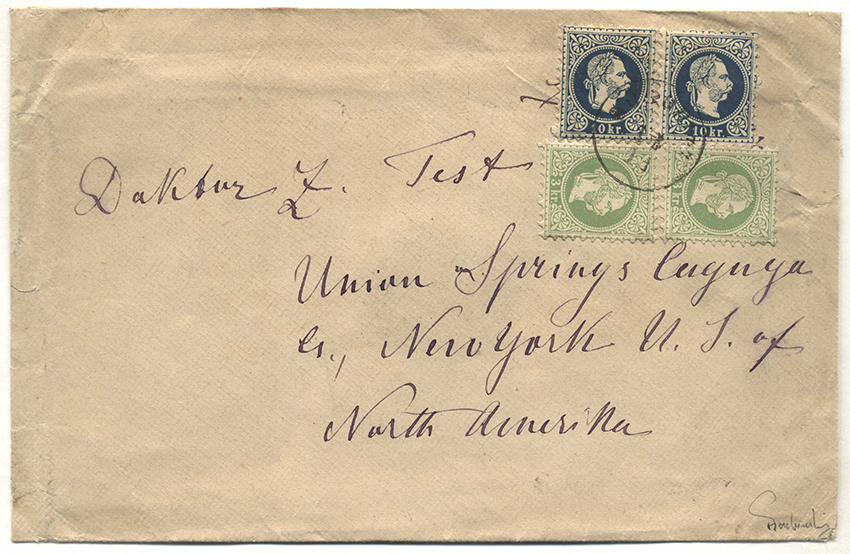 10 kr. 10 kr.
3 kr. 3 kr.
Doktor Z. Test
Union Springs Cayuga
Co., New York U. S. of
North Amerika